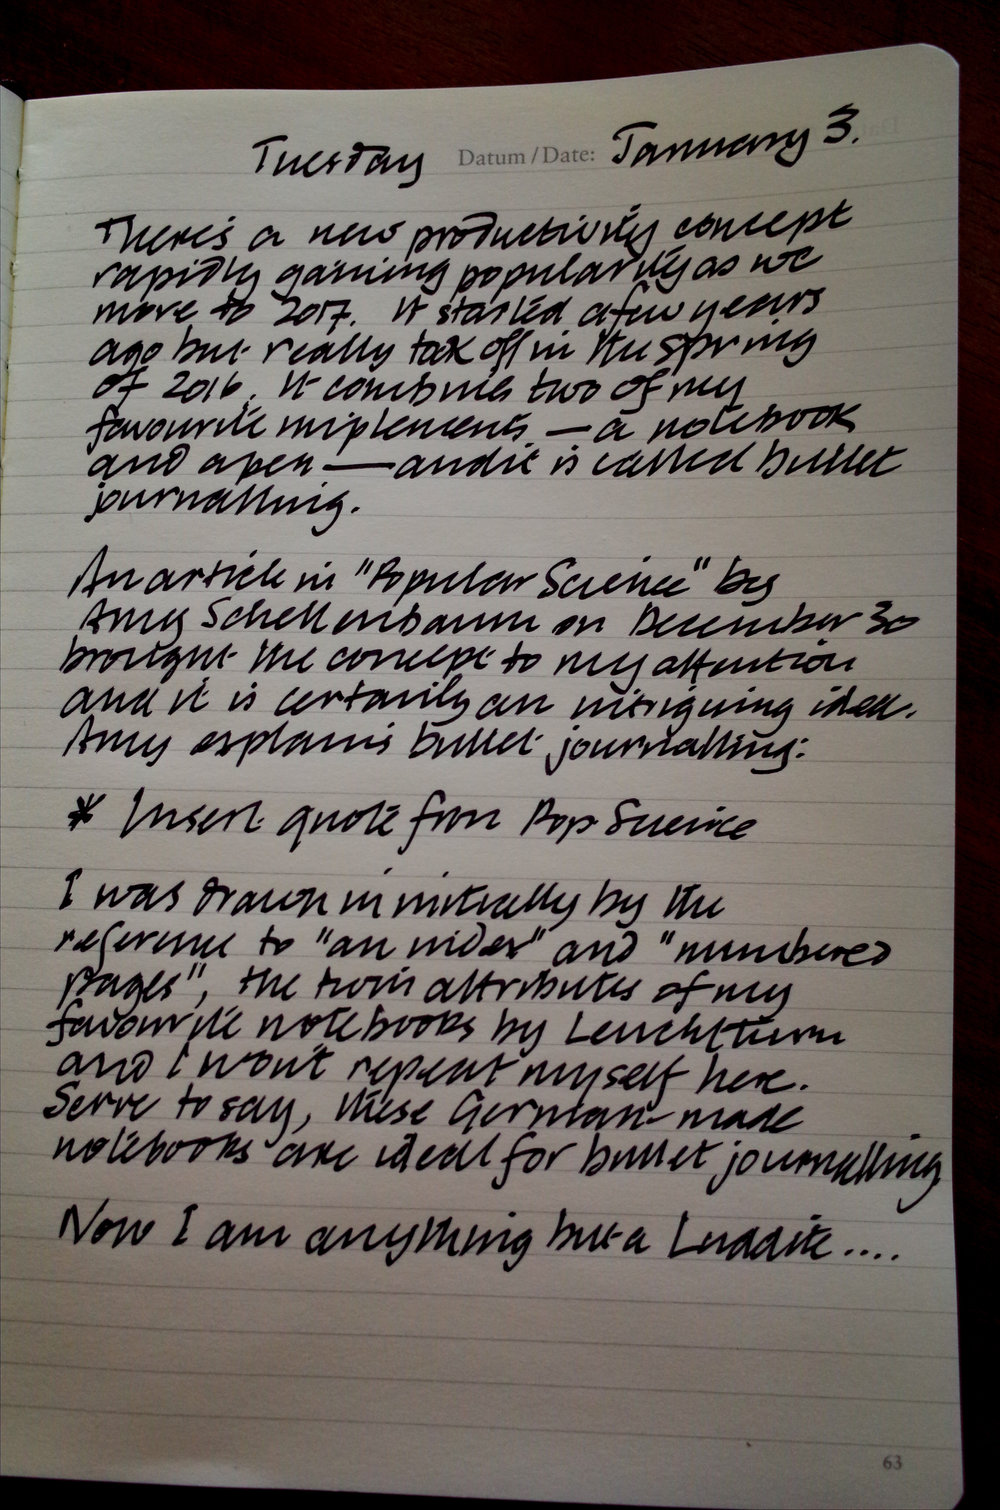 Tuesday Datum / Date: January 3.
There's a new productivity concept
rapidly gaining popularity as we
move to 2017. It started a few years
ago but really took off in the spring
of 2016. It combines two of my
favourite implements — a notebook
and a pen — and it is called bullet
journalling.
An article in "Popular Science" by
Amy Schellenbaum on December 30
brought the concept to my attention
and it is certainly an intriguing idea.
Amy explains bullet journalling:
* Insert quote from Pop Science
I was drawn in initially by the
reference to "an index" and "numbered
pages", the twin attributes of my
favourite notebooks by Leuchtturm
and I won't repeat myself here.
Serve to say, these German-made
notebooks are ideal for bullet journalling
Now I am anything but a Luddite....
63